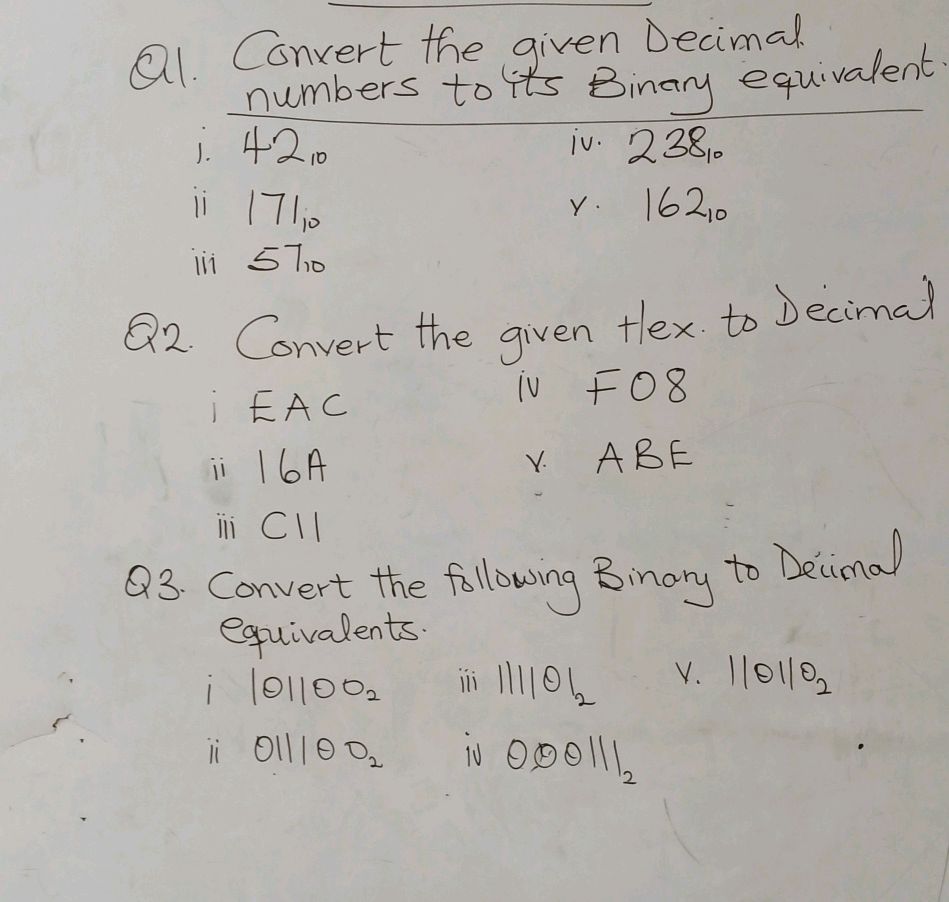 Q1. Convert the given Decimal
numbers to its Binary equivalent.
i. 42₁₀ iv. 238₁₀
ii 171₁₀ v. 162₁₀
iii 57₁₀
Q2. Convert the given Hex. to Decimal
i EAC iv F08
ii 16A v. ABE
iii C11
Q3. Convert the following Binary to Decimal
equivalents.
i 101100₂ iii 111101₂ v. 110110₂
ii 011100₂ iv 000111₂